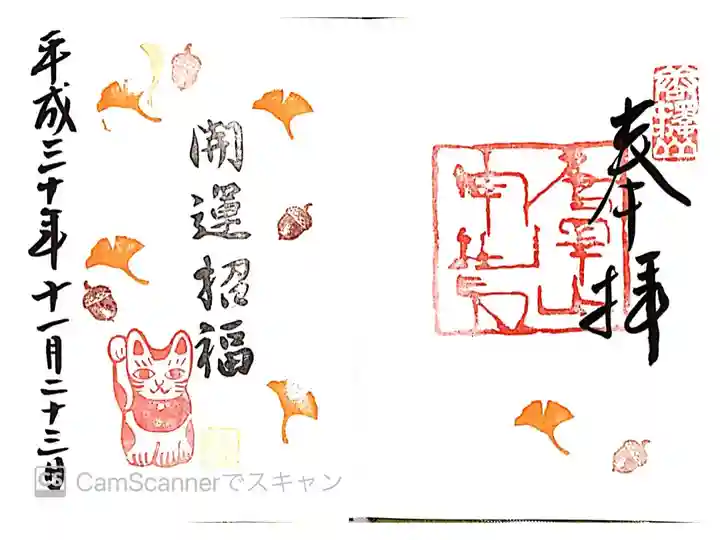 奉拝
開運招福
平成三十年十一月二十三日
CS CamScannerでスキャン